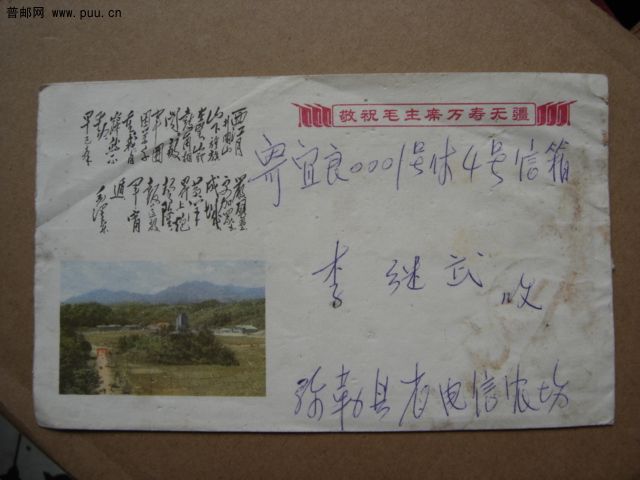 普邮网 www.puu.cn
敬祝毛主席万寿无疆
西江月
井冈山
山下旌旗
在望山头
鼓角相
闻敌
军围
困万千
重我自
岿然不
动
早已森
严壁垒
更加众志
成城
黄洋
界上炮
声隆
报道敌
军宵
遁
毛泽东
寄宜良0001号休4号信箱
李继武 收
弥勒县省电信农场